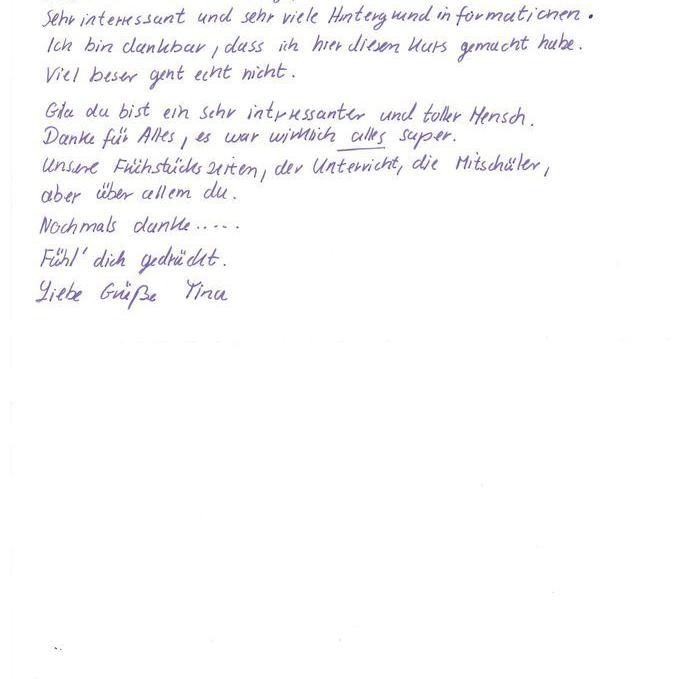 Sehr interessant und sehr viele Hintergrundinformationen.
Ich bin dankbar, dass ich hier diesen Kurs gemacht habe.
Viel besser geht echt nicht.
Gia du bist ein sehr intressanter und toller Mensch.
Danke für Alles, es war wirklich alles super.
Unsere Frühstückszeiten, der Unterricht, die Mitschüler,
aber über allem du.
Nochmals danke.....
Fühl' dich gedrückt.
Liebe Grüße Tina